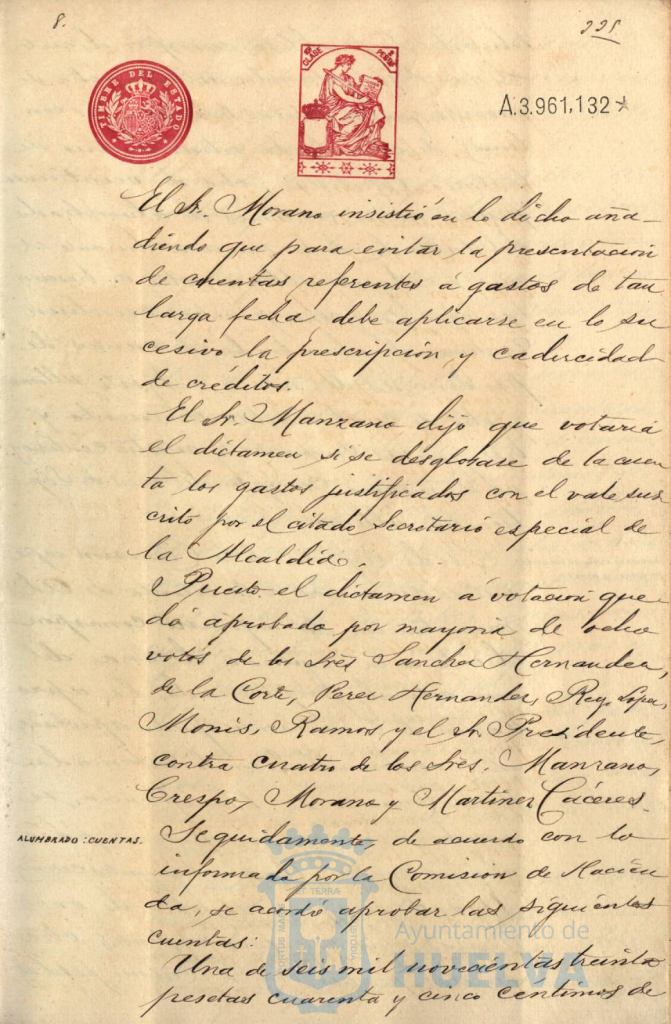 8.
225
TIMBRE DEL ESTADO
CLASE
PESETAS
A.3.961,132
El Sr. Morano insistió en lo dicho aña-
diendo que para evitar la presentacion
de cuentas referentes á gastos de tan
larga fecha debe aplicarse en lo su
cesivo la prescripción y caducidad
de créditos.
El Sr. Manzano dijo que votaria
el dictamen si se desglosase de la cuen
ta los gastos justificados con el vale sus
crito por el citado Secretario especial de
la Alcaldia.
Puesto el dictamen á votacion que
dó aprobado por mayoria de ocho
votos de los Sres Sanchez Hernandez,
de la Corte, Perez Hernandez, Rey, Lopez,
Monis, Ramos y el Sr. Presidente,
contra cuatro de los Sres. Manzano,
Crespo, Morano y Martinez Cáceres.
ALUMBRADO: CUENTAS.
Seguidamente, de acuerdo con lo
informado por la Comision de Hacien
da, se acordó aprobar las siguientes
cuentas:
Una de seis mil novecientas treinta
pesetas cuarenta y cinco centimos de
Ayuntamiento de
HUELVA